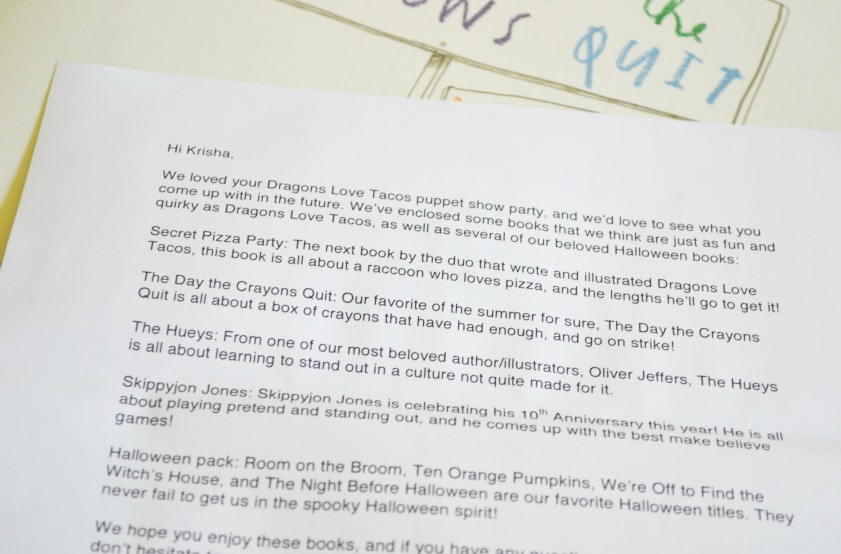 the
OWS QUIT
Hi Krisha,
We loved your Dragons Love Tacos puppet show party, and we'd love to see what you
come up with in the future. We've enclosed some books that we think are just as fun and
quirky as Dragons Love Tacos, as well as several of our beloved Halloween books:
Secret Pizza Party: The next book by the duo that wrote and illustrated Dragons Love
Tacos, this book is all about a raccoon who loves pizza, and the lengths he'll go to get it!
The Day the Crayons Quit: Our favorite of the summer for sure, The Day the Crayons
Quit is all about a box of crayons that have had enough, and go on strike!
The Hueys: From one of our most beloved author/illustrators, Oliver Jeffers, The Hueys
is all about learning to stand out in a culture not quite made for it.
Skippyjon Jones: Skippyjon Jones is celebrating his 10th Anniversary this year! He is all
about playing pretend and standing out, and he comes up with the best make believe
games!
Halloween pack: Room on the Broom, Ten Orange Pumpkins, We're Off to Find the
Witch's House, and The Night Before Halloween are our favorite Halloween titles. They
never fail to get us in the spooky Halloween spirit!
We hope you enjoy these books, and if you have any
don't